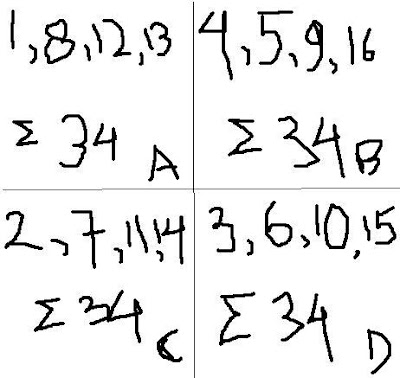 1, 8, 12, 13
Σ 34 A
4, 5, 9, 16
Σ 34 B
2, 7, 11, 14
Σ 34 C
3, 6, 10, 15
Σ 34 D